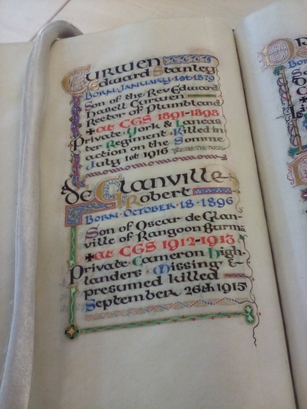 Curwen
Edward Stanley
Born January 1st 1879
Son of the Rev Edward
Hasell Curwen
Rector of Plumbland
at CGS 1891-1898
Private York & Lancas
ter Regiment Killed in
action on the Somme
July 1st 1916
de Glanville
Robert
Born October 18 1896
Son of Oscar de Glan-
ville of Rangoon Burma
at CGS 1912-1913
Private Cameron High-
landers Missing
presumed killed
September 26th 1915